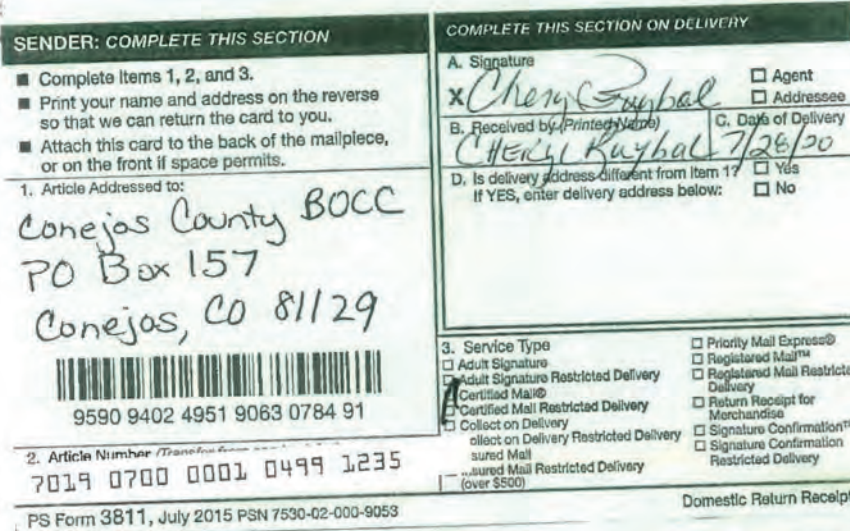 SENDER: COMPLETE THIS SECTION
■ Complete items 1, 2, and 3.
■ Print your name and address on the reverse
so that we can return the card to you.
■ Attach this card to the back of the mailpiece,
or on the front if space permits.
1. Article Addressed to:
Conejos County BOCC
PO Box 157
Conejos, CO 81129
9590 9402 4951 9063 0784 91
2. Article Number
7019 0700 0001 0499 1235
COMPLETE THIS SECTION ON DELIVERY
A. Signature
X Cheryl Ruybal
☐ Agent
☐ Addressee
B. Received by (Printed Name)
CHERYL Ruybal
C. Date of Delivery
7/28/20
D. Is delivery address different from item 1? ☐ Yes
If YES, enter delivery address below: ☐ No
3. Service Type
☐ Adult Signature
☐ Adult Signature Restricted Delivery
Certified Mail®
☐ Certified Mail Restricted Delivery
☐ Collect on Delivery
ollect on Delivery Restricted Delivery
sured Mail
sured Mail Restricted Delivery
(over $500)
☐ Priority Mail Express®
☐ Registered Mail™
☐ Registered Mail Restricte
Delivery
☐ Return Receipt for
Merchandise
☐ Signature Confirmation™
☐ Signature Confirmation
Restricted Delivery
PS Form 3811, July 2015 PSN 7530-02-000-9053
Domestic Return Receipt